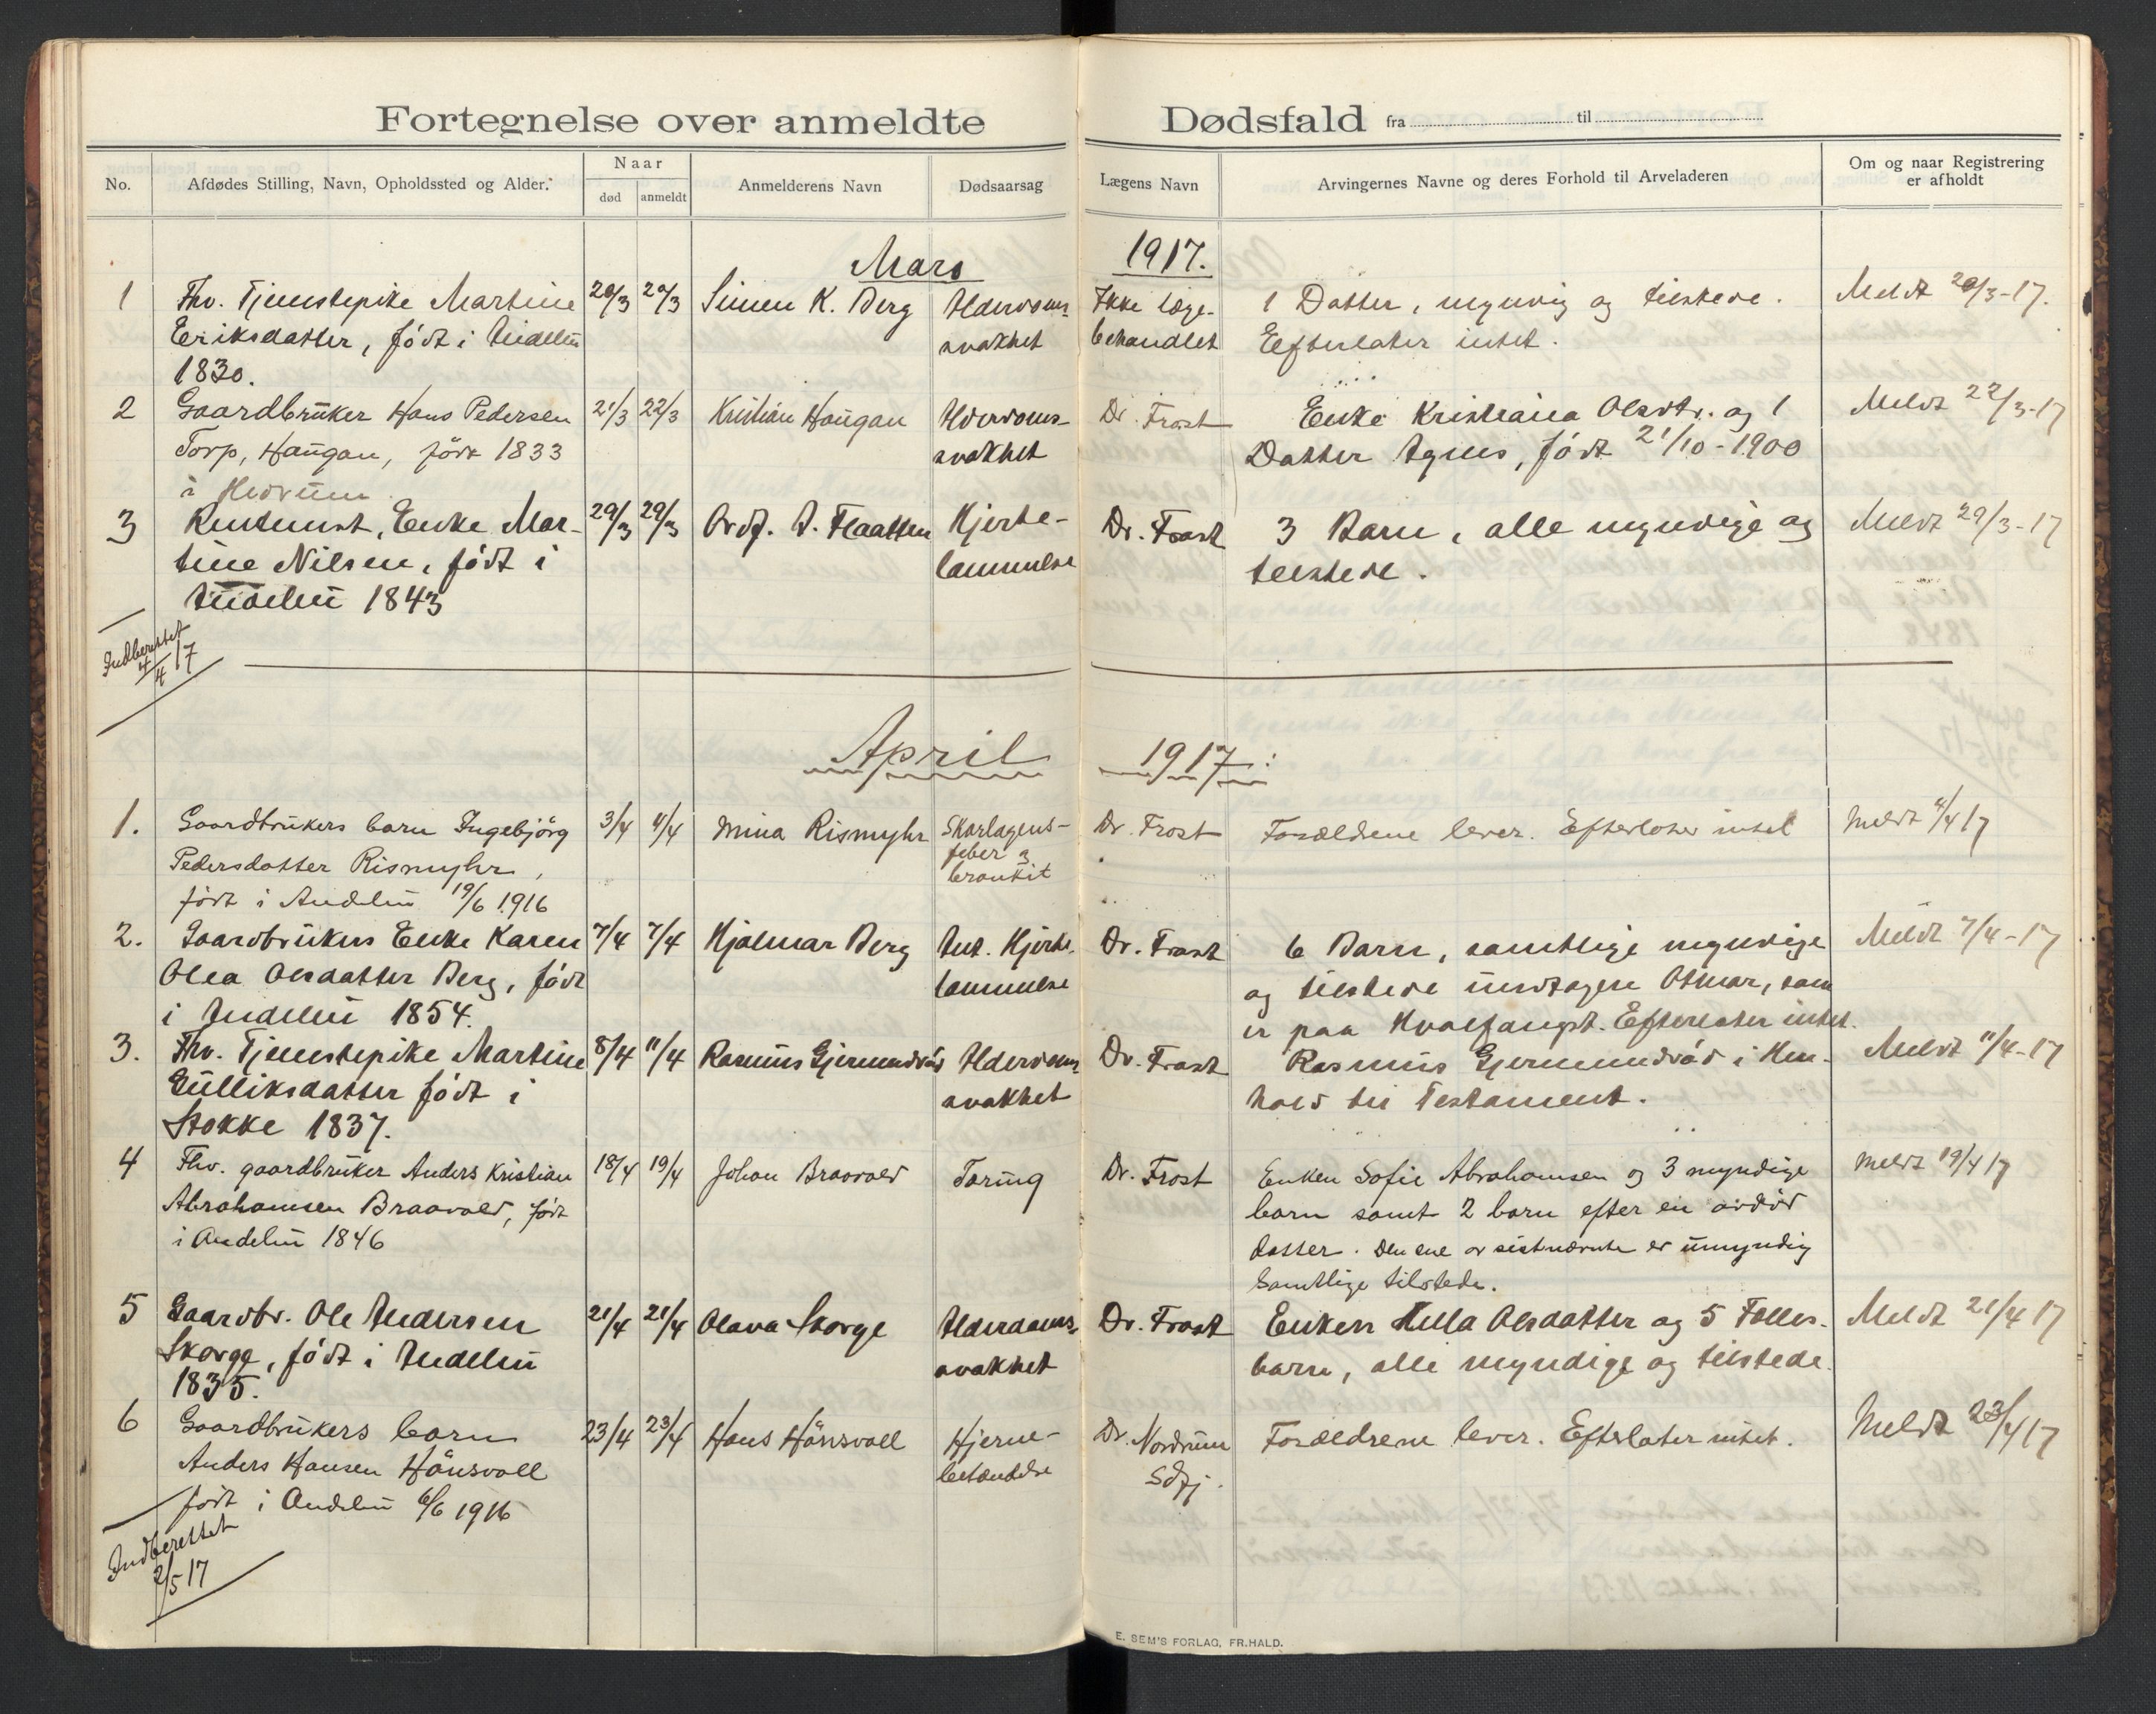 Fortegnelse over anmeldte Dødsfald fra til
No.
Afdødes Stilling, Navn, Opholdssted og Alder.
Naar
død
anmeldt
Anmelderens Navn
Dødsaarsag
Lægens Navn
Arvingernes Navne og deres Forhold til Arveladeren
Om og naar Registrering
er afholdt
Mars 1917.
1 Fhv. Tjenestepike Martine 20/3 20/3 Simen K. Berg Alderdoms- Ikke læge- 1 Datter, myndig og tilstede. Meldt 20/3-17.
Eriksdatter, født i Andebu svakhet behandlet Efterlater intet.
1830.
2 Gaardbruker Hans Pedersen 21/3 22/3 Kristian Haugan Alderdoms- Dr. Frost Enke Kristiana Olsdtr. og 1 Meldt 22/3-17
Torp, Haugan, født 1833 svakhet Datter Agnes, født 21/10-1900
i Hedrum
3 Rentenist, Enke Mar- 29/3 29/3 Ordf. A. Flaatten Hjerte- Dr. Frost 3 Barn, alle myndige og Meldt 29/3-17
tine Nilsen, født i lammelse tilstede.
Andebu 1843
Indberettet
4/4 17
April 1917:
1. Gaardbrukers barn Ingebjörg 3/4 4/4 Mina Rismyhr Skarlagens- Dr. Frost Forældrene lever. Efterlater intet Meldt 4/4 17
Pedersdatter Rismyhr, feber og
født i Andebu 19/6 1916 bronkit
2. Gaardbrukers Enke Karen 7/4 7/4 Hjalmar Berg Ant. Hjerte- Dr. Frost 6 Barn, samtlige myndige Meldt 7/4-17
Olea Olsdatter Berg, født lammelse og tilstede undtagen Otmar, som
i Andebu 1854. er paa Hvalfangst. Efterlater intet.
3. Fhv. Tjenestepike Martine 8/4 11/4 Rasmus Gjermundröd Alderdoms- Dr. Frost Rasmus Gjermundröd i Hen- Meldt 11/4-17
Gulliksdatter født i svakhet hold til Testament.
Stokke 1837.
4 Fhv. gaardbruker Anders Kristian 18/4 19/4 Johan Braavold Tæring Dr. Frost Enken Sofie Abrahamsen og 3 myndige Meldt 19/4 17
Abrahamsen Braavold, født barn samt 2 barn efter en avdöd
i Andebu 1846 datter. Den ene av sistnævnte er umyndig
Samtlige tilstede.
5 Gaardbr. Ole Andersen 21/4 21/4 Olava Skorge Alderdoms- Dr. Frost Enken Hella Olsdatter og 5 Felles- Meldt 21/4 17
Skorge, født i Andebu svakhet barn, alle myndige og tilstede.
1835.
6 Gaardbrukers barn 23/4 23/4 Hans Hönsvall Hjerne- Dr. Nordrum Forældrene lever. Efterlater intet. Meldt 23/4 17
Anders Hansen Hönsvall betændelse Sdfj.
født i Andebu 6/6 1916
Indberettet
2/5 17
E. SEM'S FORLAG, FR.HALD.